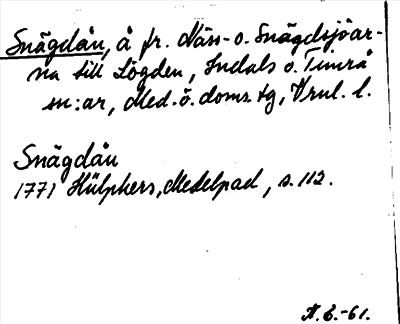 Snägdån, å fr. Näss- o. Snägdsjöar-
na till Lögden, Indals o. Timrå
sn:ar, Med. ö. doms:tg, Vrnl. l.
Snägdån
1771 Hülphers, Medelpad, s. 112.
-61.